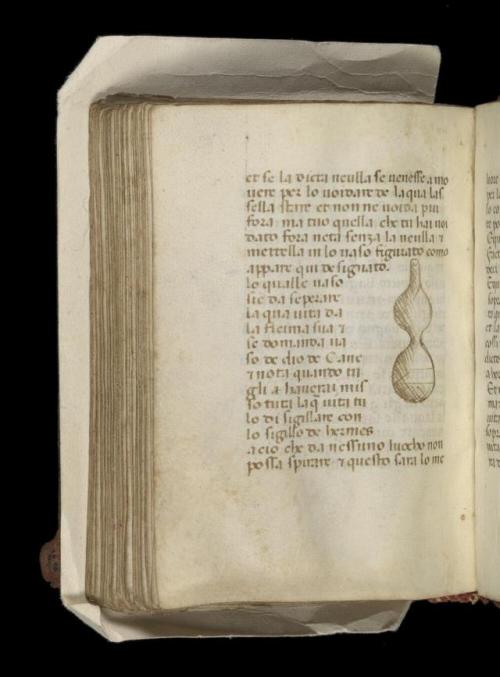 et se la dicta neulla se uenesse a mo
uere per lo uoidare de la qua las
sella stare et non ne uoida piu
fora ma tuo quella che tu hai uoi
dato fora neta senza la neulla ⁊
mettella in lo naso figurato como
appare qui designato.
lo qualle naso
sie da seperare
la qua uita da
la flema sua ⁊
se domanda ua
so de dio de Cane
⁊ nota quando tu
gli a haueru mis
so tuti laq̃ uiti tu
lo di sigillare con
lo sigillo de hermes
acio che da nessuno luocho non
possa spirare ⁊ questo sara lo me